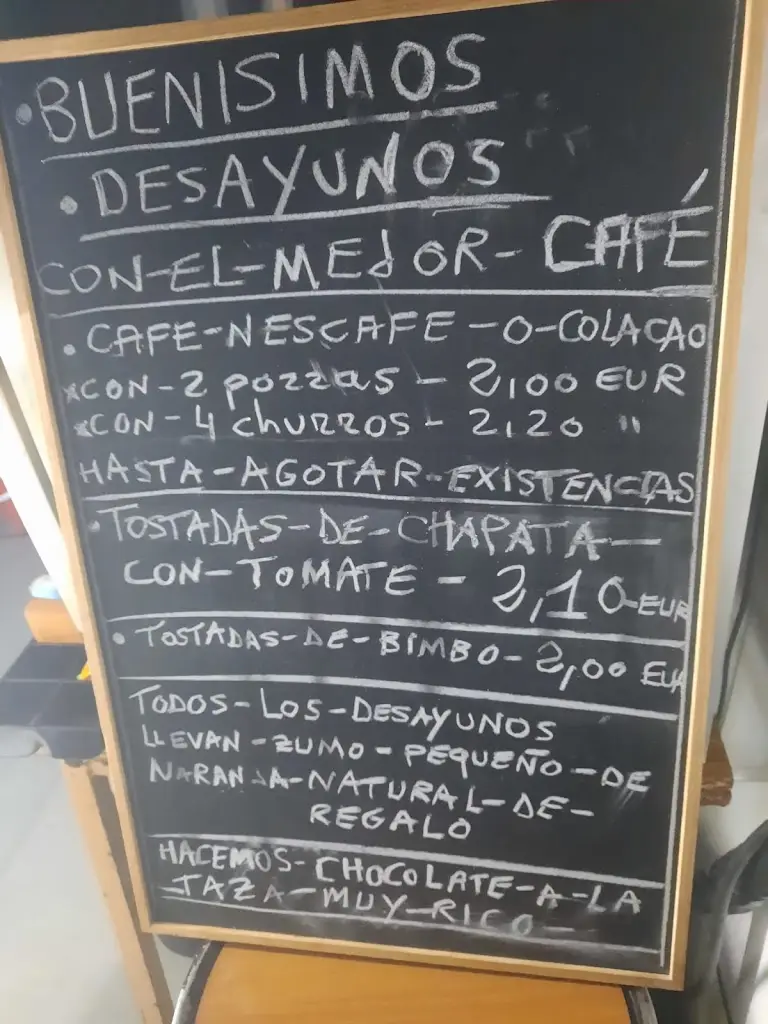 • BUENISIMOS
• DESAYUNOS
CON-EL-MEJOR-CAFÉ
• CAFE-NESCAFE-O-COLACAO
*CON-2 pozzas - 2,00 EUR
*CON-4 churros - 2,20 "
HASTA-AGOTAR-EXISTENCIAS
• TOSTADAS-DE-CHAPATA-
CON-TOMATE - 2,10-EUR
• TOSTADAS-DE-BIMBO-2,00 EUR
TODOS-LOS-DESAYUNOS
LLEVAN-ZUMO-PEQUEÑO-DE
NARANJA-NATURAL-DE-
REGALO
HACEMOS-CHOCOLATE-A-LA
TAZA-MUY-RICO-